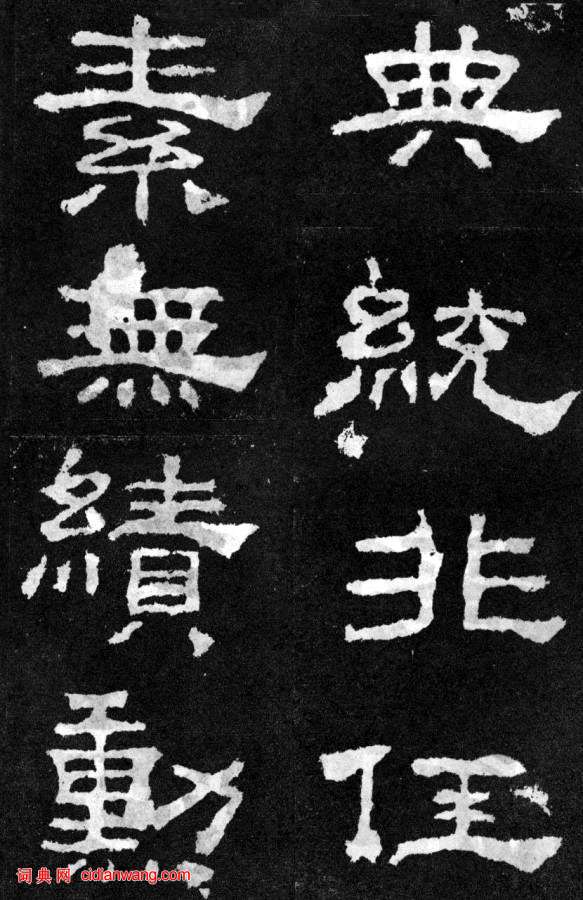 典統非任
素無績勳
词典网 cidianwang.com